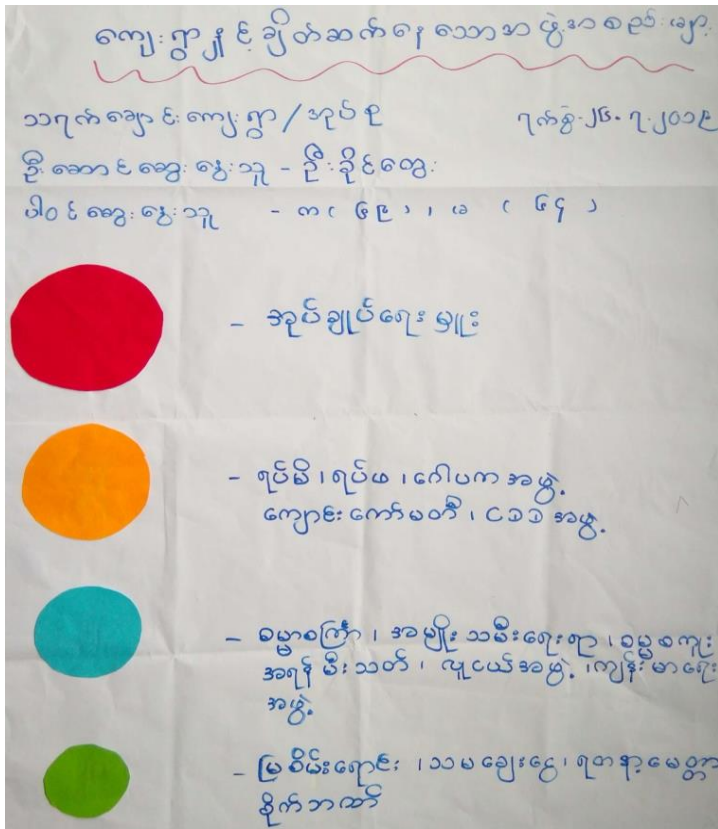 ကျေးရွာနှင့်ချိတ်ဆက်နေသောအဖွဲ့အစည်းများ
သရက်ချောင်းကျေးရွာ/အုပ်စု ရက်စွဲ-၂၆.၇.၂၀၁၉
ဦးဆောင်ဆွေးနွေးသူ - ဦးခိုင်တွေး
ပါဝင်ဆွေးနွေးသူ - က ( ၆၉ ) ၊ မ ( ၆၄ )
- အုပ်ချုပ်ရေးမှူး
- ရပ်မိ ၊ ရပ်ဖ ၊ ဂေါပကအဖွဲ့
ကျောင်းကော်မတီ ၊ အဖွဲ့
- ဓမ္မာစကြာ ၊ အမျိုးသမီးရေးရာ ၊ ဓမ္မစကူး
အရန်မီးသတ် ၊ လူငယ်အဖွဲ့ ၊ ကျန်းမာရေး
အဖွဲ့
- မြစိမ်းရောင် ၊ သမချေးငွေ ၊ ရတနာ့မေတ္တာ
စိုက်ဘဏ်